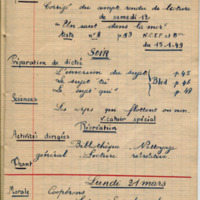 Corrigé du sujet rendu de lecture
de samedi 12
"En saut dans la mer"
Texte n° 8 p 93
du 15.1.49
Soir
Préparation de dictée
L'inversion du sujet p. 45
Le sujet "tu" Bled p. 46
Le sujet "qui" p. 47
Sciences
Les corps qui flottent ou non
Cahier spécial
Récréation
Activités dirigées
Bibliothèque Nettoyage
général Lecture récréative
Chant
Lundi 21 mars
Morale